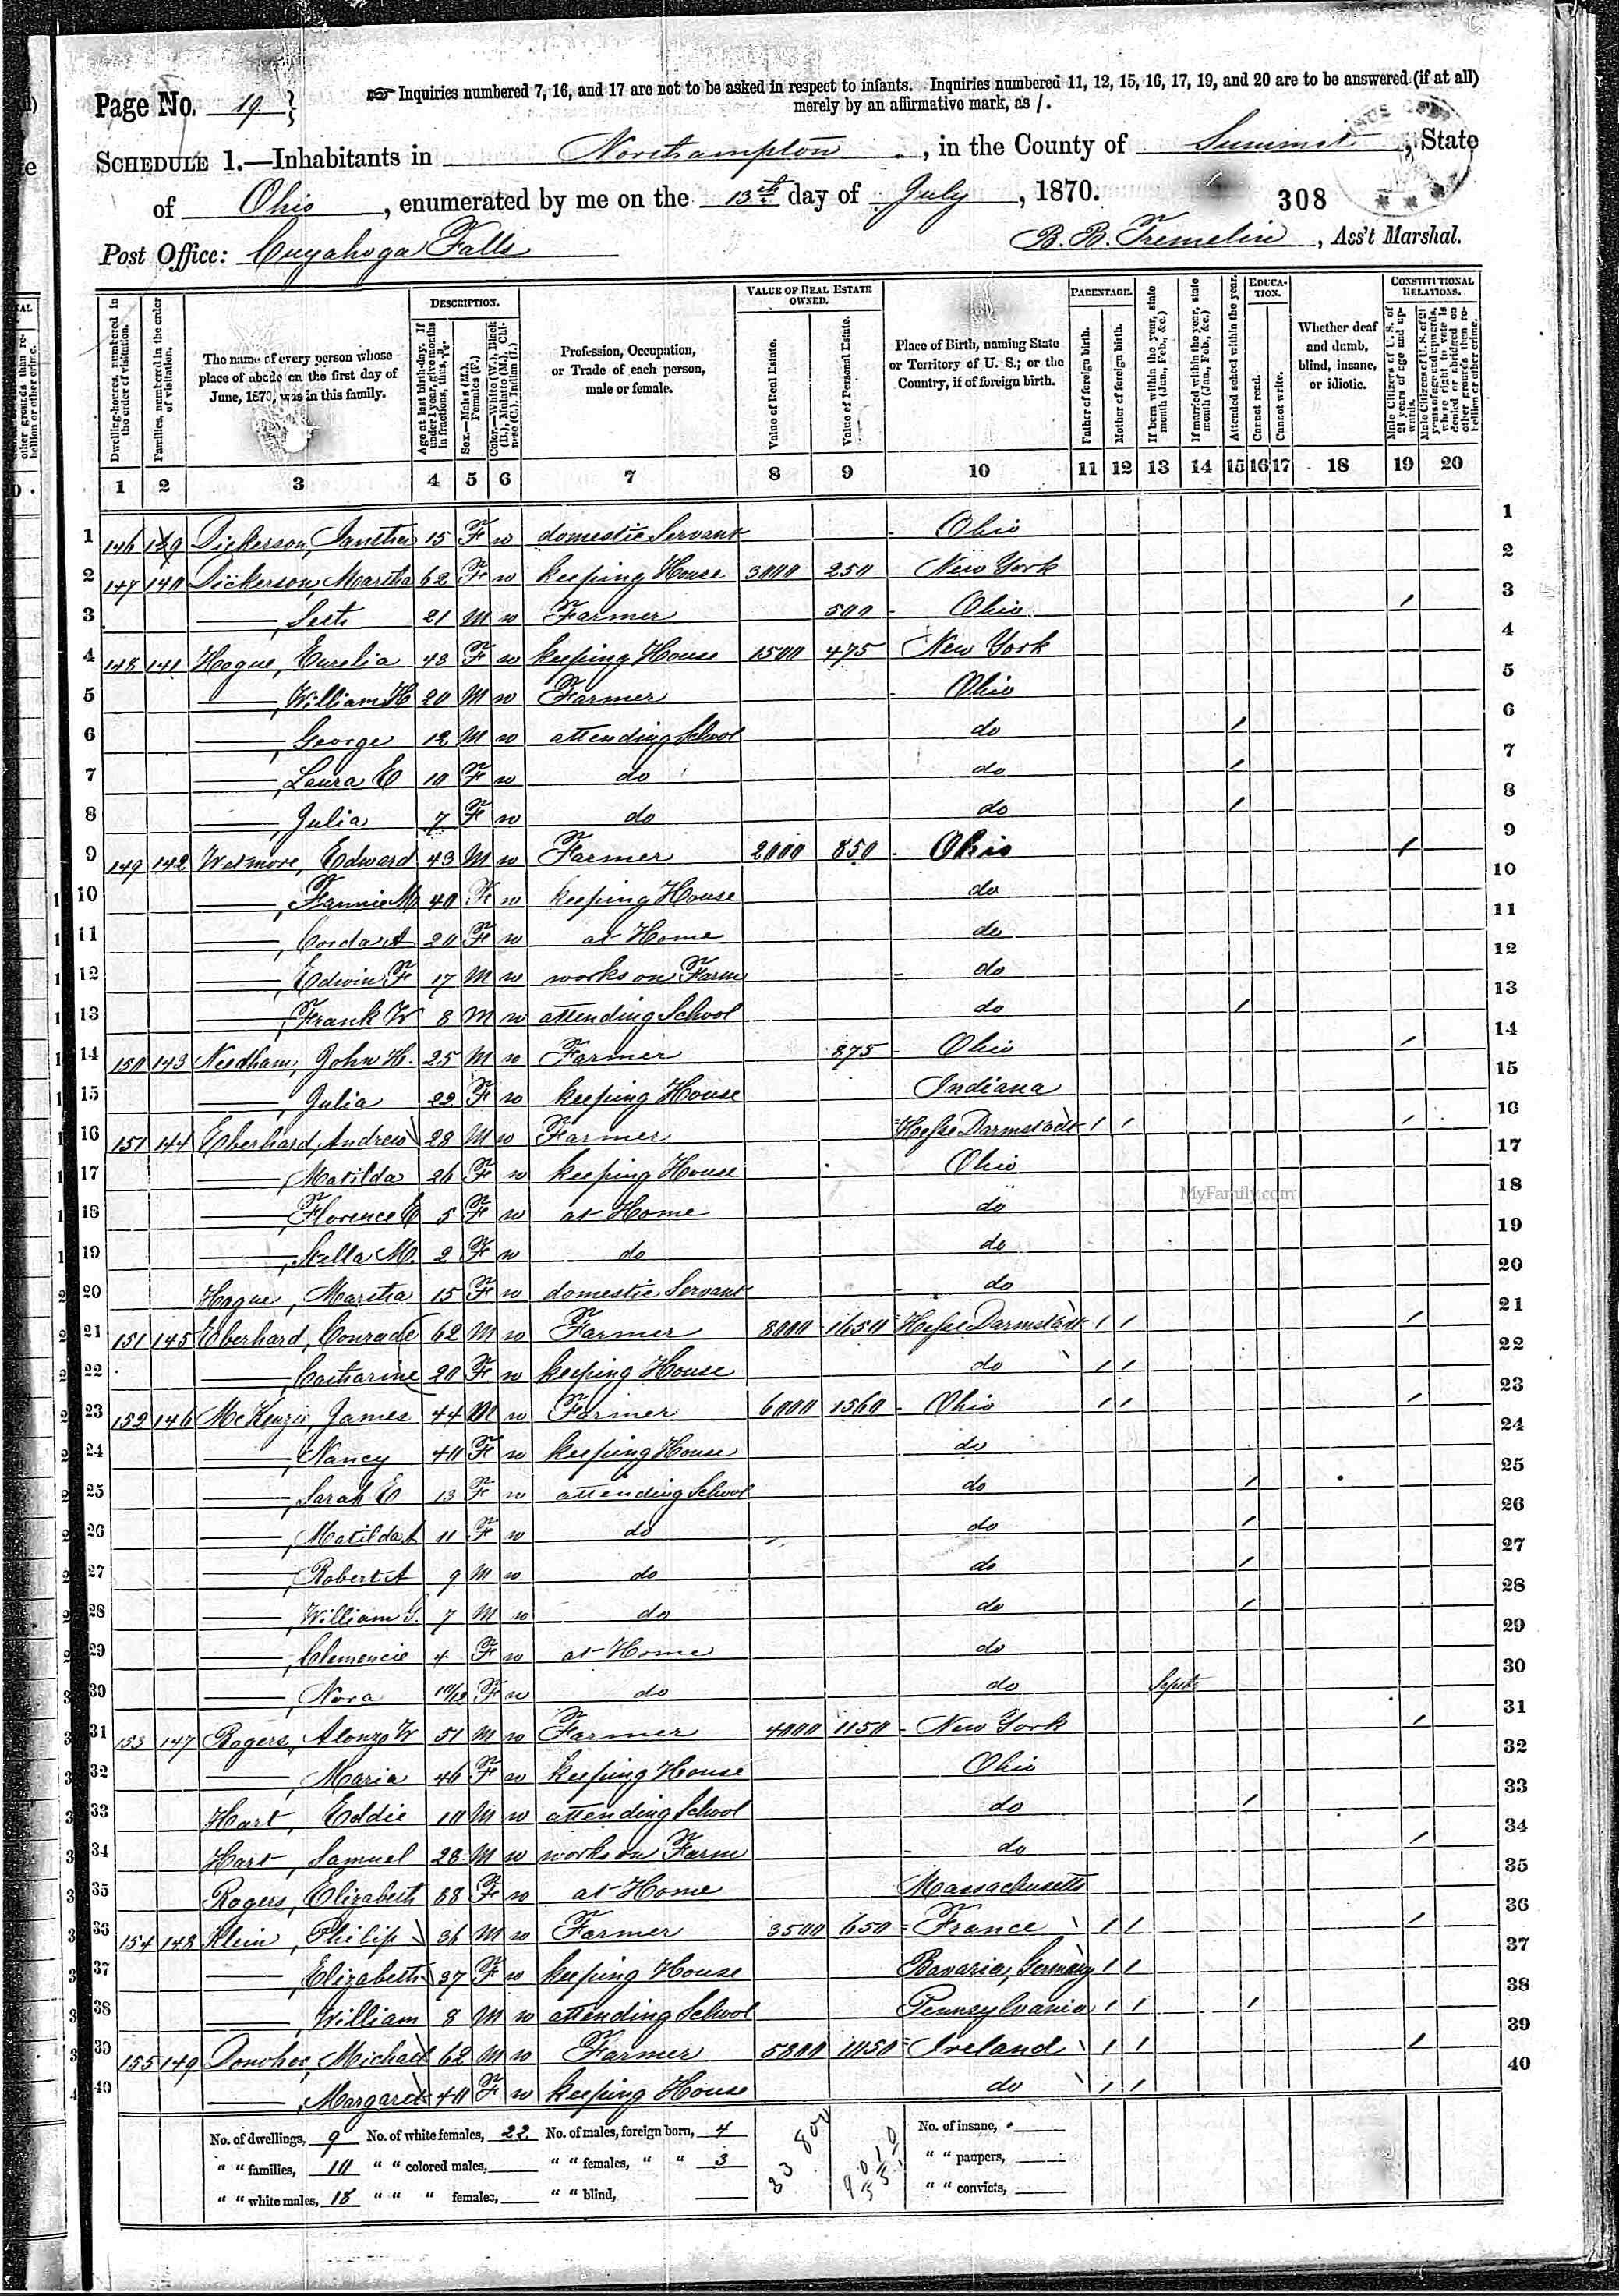 ☞ Inquiries numbered 7, 16, and 17 are not to be asked in respect to infants. Inquiries numbered 11, 12, 15, 16, 17, 19, and 20 are to be answered (if at all)
Page No. 19 } merely by an affirmative mark, as /.
SCHEDULE 1.—Inhabitants in Northampton, in the County of Summit, State
of Ohio, enumerated by me on the 13th day of July, 1870. 308
Post Office: Cuyahoga Falls B. B. Tremelin, Ass't Marshal.
Dwelling-houses, numbered in the order of visitation.
Families, numbered in the order of visitation.
The name of every person whose place of abode on the first day of June, 1870, was in this family.
DESCRIPTION.
Age at last birth-day. If under 1 year, give months in fractions, thus,
Sex.—Males (M.), Females (F.)
Color.—White (W.), Black (B.), Mulatto (M.), Chinese (C.), Indian (I.)
Profession, Occupation, or Trade of each person, male or female.
VALUE OF REAL ESTATE OWNED.
Value of Real Estate.
Value of Personal Estate.
Place of Birth, naming State or Territory of U. S.; or the Country, if of foreign birth.
PARENTAGE.
Father of foreign birth.
Mother of foreign birth.
If born within the year, state month (Jan., Feb., &c.)
If married within the year, state month (Jan., Feb., &c.)
Attended school within the year.
EDUCATION.
Cannot read.
Cannot write.
Whether deaf and dumb, blind, insane, or idiotic.
CONSTITUTIONAL RELATIONS.
Male Citizens of U. S. of 21 years of age and upwards.
Male Citizens of U. S. of 21 years of age and upwards, whose right to vote is denied or abridged on other grounds than rebellion or other crime.
1 2 3 4 5 6 7 8 9 10 11 12 13 14 15 16 17 18 19 20
1 146 139 Dickerson, Ianthe 15 F w domestic Servant Ohio 1
2 147 140 Dickerson, Martha 62 F w keeping House 3000 250 New York 2
3 ——, Seth 21 M w Farmer 500 Ohio / 3
4 148 141 Hogue, Eurelia 43 F w keeping House 1500 475 New York 4
5 ——, William H 20 M w Farmer Ohio 5
6 ——, George 12 M w attending School do / 6
7 ——, Laura E 10 F w do do / 7
8 ——, Julia 7 F w do do / 8
9 149 142 Wetmore, Edward 43 M w Farmer 2000 850 Ohio / 9
10 ——, Fannie M 40 F w keeping House do 10
11 ——, Corda A 20 F w at Home do 11
12 ——, Edwin F 17 M w works on Farm do 12
13 ——, Frank W 8 M w attending School do / 13
14 150 143 Needham, John H. 25 M w Farmer 875 Ohio / 14
15 ——, Julia 22 F w keeping House Indiana 15
16 151 144 Eberhard, Andrew 28 M w Farmer Hesse Darmstadt / / / 16
17 ——, Matilda 26 F w keeping House Ohio 17
18 ——, Florence E 5 F w at Home do 18
19 ——, Stella M. 2 F w do do 19
20 Hogue, Martha 15 F w domestic Servant do 20
21 151 145 Eberhard, Conrade 62 M w Farmer 8000 1650 Hesse Darmstadt / / / 21
22 ——, Catharine 20 F w keeping House do / / 22
23 152 146 McKenzie, James 44 M w Farmer 6000 1560 Ohio / / / 23
24 ——, Nancy 40 F w keeping House do 24
25 ——, Sarah E 13 F w attending School do / 25
26 ——, Matilda A 11 F w do do / 26
27 ——, Robert A 9 M w do do / 27
28 ——, William S. 7 M w do do / 28
29 ——, Clemencie 4 F w at Home do 29
30 ——, Nora 10/12 F w do do Sept 30
31 153 147 Rogers, Alonzo W 51 M w Farmer 4000 1150 New York / 31
32 ——, Maria 46 F w keeping House Ohio 32
33 Hart, Eddie 10 M w attending School do / 33
34 Hart, Samuel 28 M w works on Farm do / 34
35 Rogers, Elizabeth 88 F w at Home Massachusetts 35
36 154 148 Klein, Philip 36 M w Farmer 3500 650 France / / / 36
37 ——, Elizabeth 37 F w keeping House Bavaria, Germany / / 37
38 ——, William 8 M w attending School Pennsylvania / / / 38
39 155 149 Donohoe, Michael 62 M w Farmer 5800 1050 Ireland / / / 39
40 ——, Margaret 40 F w keeping House do / / 40
No. of dwellings, 9 No. of white females, 22 No. of males, foreign born, 4 No. of insane,
" " families, 10 " " colored males, " " females, " " 3 " " paupers,
" " white males, 18 " " " females, " " blind, " " convicts,
33 800
9010
MyFamily.com